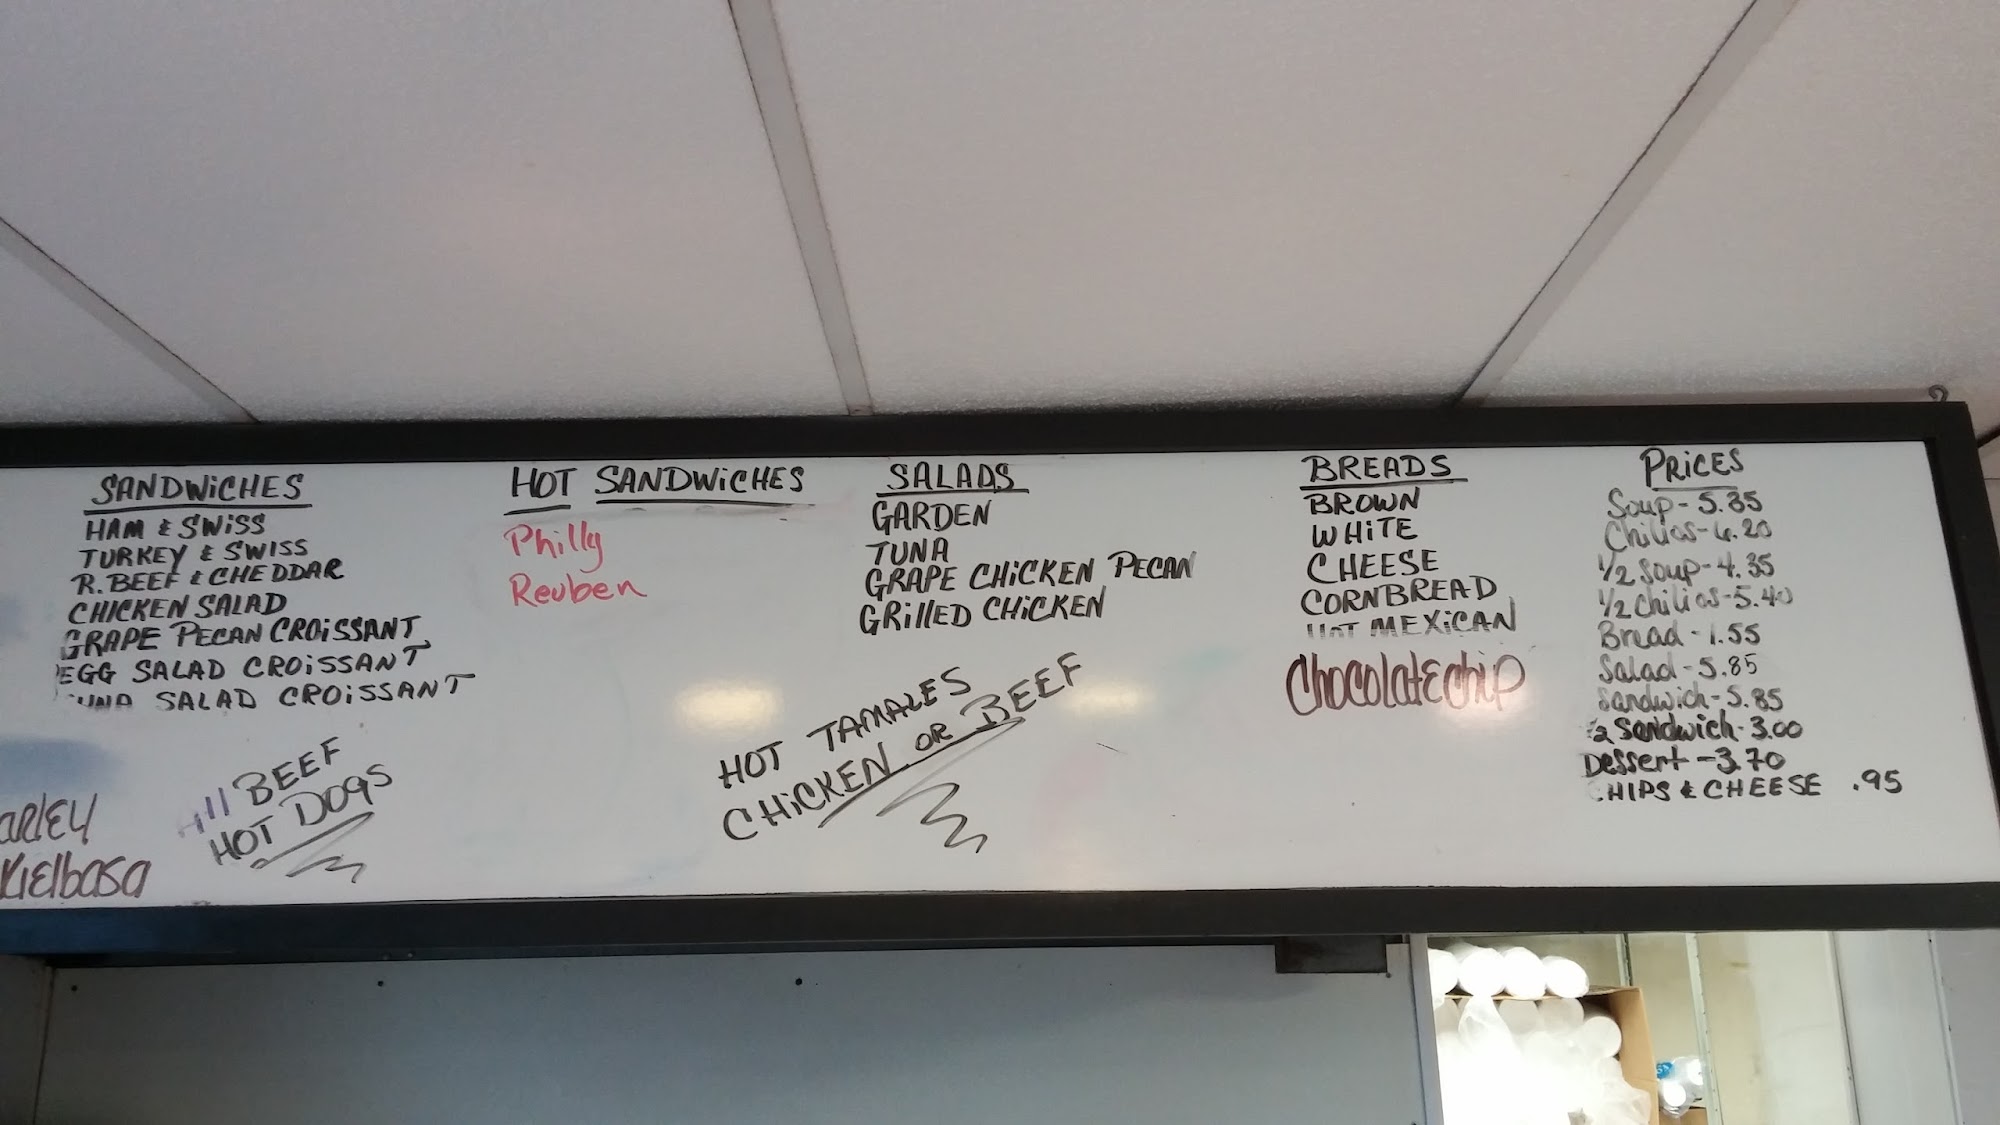 SANDWiCHES
HAM & SWiSS
TURKEY & SWISS
R. BEEF & CHEDDAR
CHICKEN SALAD
GRAPE PECAN CROiSSANT
EGG SALAD CROiSSANT
SALAD CROiSSANT
Kielbasa
All BEEF
HOT DOgS
HOT SANDWiCHES
Philly
Reuben
HOT TAMALES
CHiCKEN OR BEEF
SALADS
GARDEN
TUNA
GRAPE CHiCKEN PECAN
GRilled CHiCKEN
BREADS
BROWN
WHiTE
CHEESE
CORNBREAD
HOT MEXiCAN
Chocolate chip
PRiCES
Soup - 5.35
Chilios - 6.20
1/2 Soup - 4.35
1/2 Chilios - 5.40
Bread - 1.55
Salad - 5.85
Sandwich - 5.85
1/2 Sandwich - 3.00
Dessert - 3.70
CHIPS & CHEESE .95